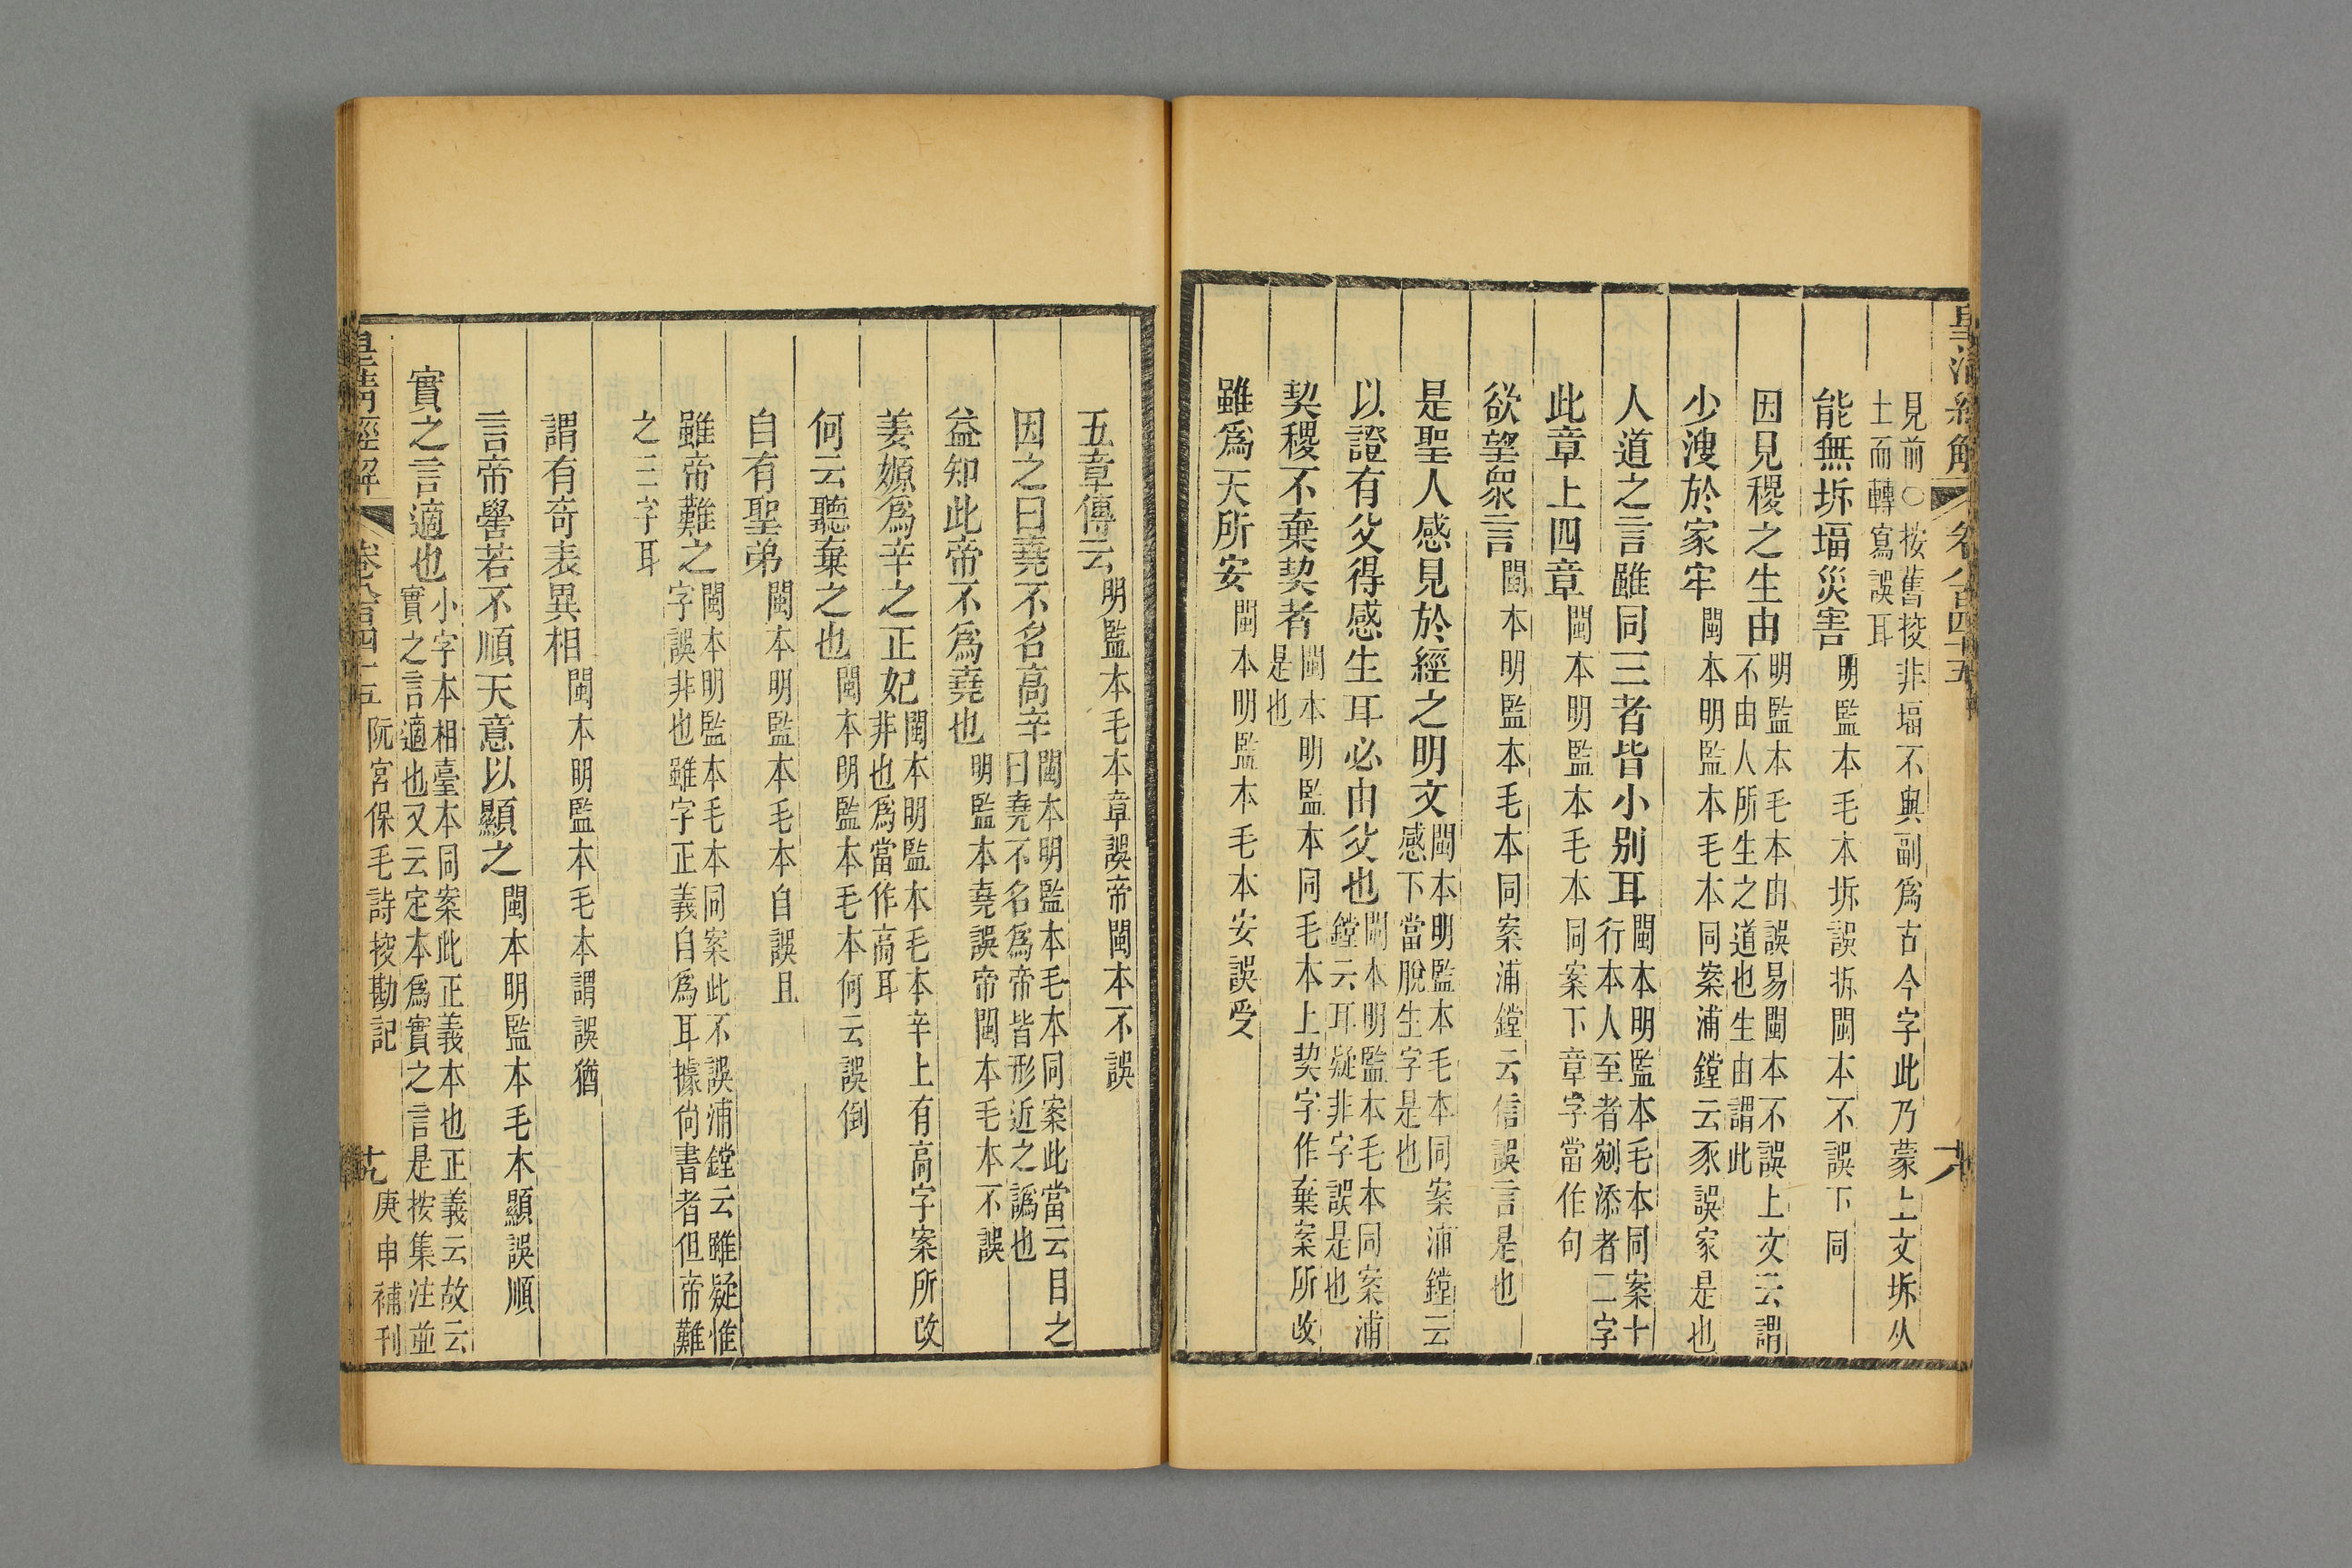 皇清經解 卷八百四十五
見前〇按舊挍非堛不與副爲古今字此乃蒙上文坼从
土而轉寫誤耳
能無坼堛災害 明監本毛本坼誤拆閩本不誤下同
因見稷之生由 明監本毛本由誤易閩本不誤上文云謂
不由人所生之道也生由謂此
少溲於家牢 閩本明監本毛本同案浦鏜云豕誤家是也
人道之言雖同三者皆小別耳 閩本明監本毛本同案十
行本人至者剜添者二字
此章上四章 閩本明監本毛本同案下章字當作句
欲望衆言 閩本明監本毛本同案浦鏜云信誤言是也
是聖人感見於經之明文 閩本明監本毛本同案浦鏜云
感下當脫生字是也
以證有父得感生耳必由父也 閩本明監本毛本同案浦
鏜云耳疑非字誤是也
契稷不棄契者 閩本明監本同毛本上契字作棄案所改
是也
雖爲天所安 閩本明監本毛本安誤受
五章傳云 明監本毛本章誤帝閩本不誤
因之曰堯不名高辛 閩本明監本毛本同案此當云目之
曰堯不名爲帝皆形近之譌也
益知此帝不爲堯也 明監本堯誤帝閩本毛本不誤
姜嫄爲辛之正妃 閩本明監本毛本辛上有高字案所改
非也爲當作高耳
何云聽棄之也 閩本明監本毛本何云誤倒
自有聖弟 閩本明監本毛本自誤且
雖帝難之 閩本明監本毛本同案此不誤浦鏜云雖疑惟
字誤非也雖字正義自爲耳據尙書者但帝難
之三字耳
謂有奇表異相 閩本明監本毛本謂誤猶
言帝嚳若不順天意以顯之 閩本明監本毛本顯誤順
實之言適也 小字本相臺本同案此正義本也正義云故云
實之言適也又云定本爲實之言是按集注並
皇清經解 卷八百四十五 阮宮保毛詩挍勘記 庚申補刊